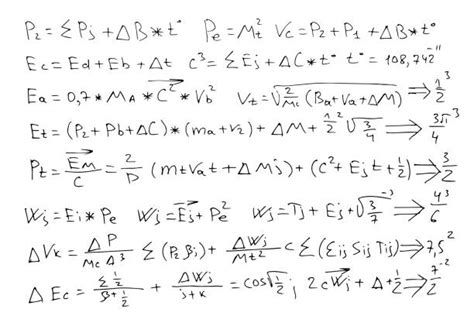 P₂ = ΣPj + ΔB * t° Pe = Mt² Vc = P₂ + P₁ + ΔB * t°
Ec = Ed + Eb + Δt c³ = ΣEj + ΔC * t° t° = 108,742⁻"
Ea = 0,7 * MA * C² * Vb² Vt = √2/Mc (Ba + Va + ΔM) ⇒ 1/2³
Et = (P₂ + Pb + ΔC) * (ma + v₂) + ΔM + 1/2² √3/4 ⇒ 3π³/4
Pt = EM/C = 2/D (mtVat + ΔMj) + (C² + Ejt + 1/2) ⇒ 3/2
Wj = Ei * Pe Wj = Ej + Pe² Wj = Tj + Ej + √3/7⁻³ ⇒ 4³/6
ΔVk = ΔP/Mc Δ³ Σ(P₂ βj) + ΔWj/Mt² c Σ(Eij Sij Tij) ⇒ 7,5²
ΔEc = Σ1/2/β+1/2 + ΔWj/j+k = cos√1/2 ; 2cWj + Δ + 1/2 ⇒ 7⁻²/2